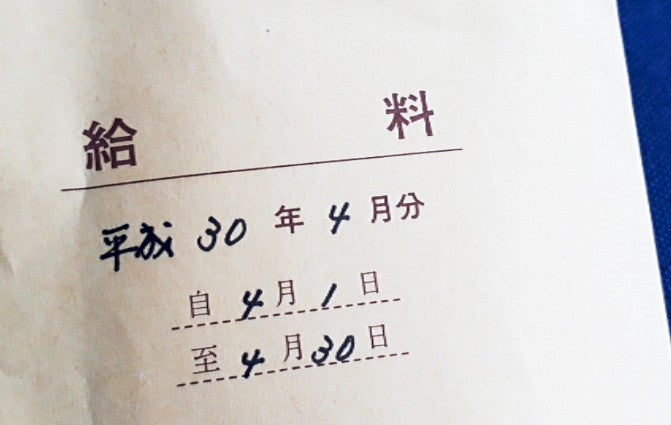 給 料
平成 30 年 4 月分
自 4 月 1 日
至 4 月 30 日